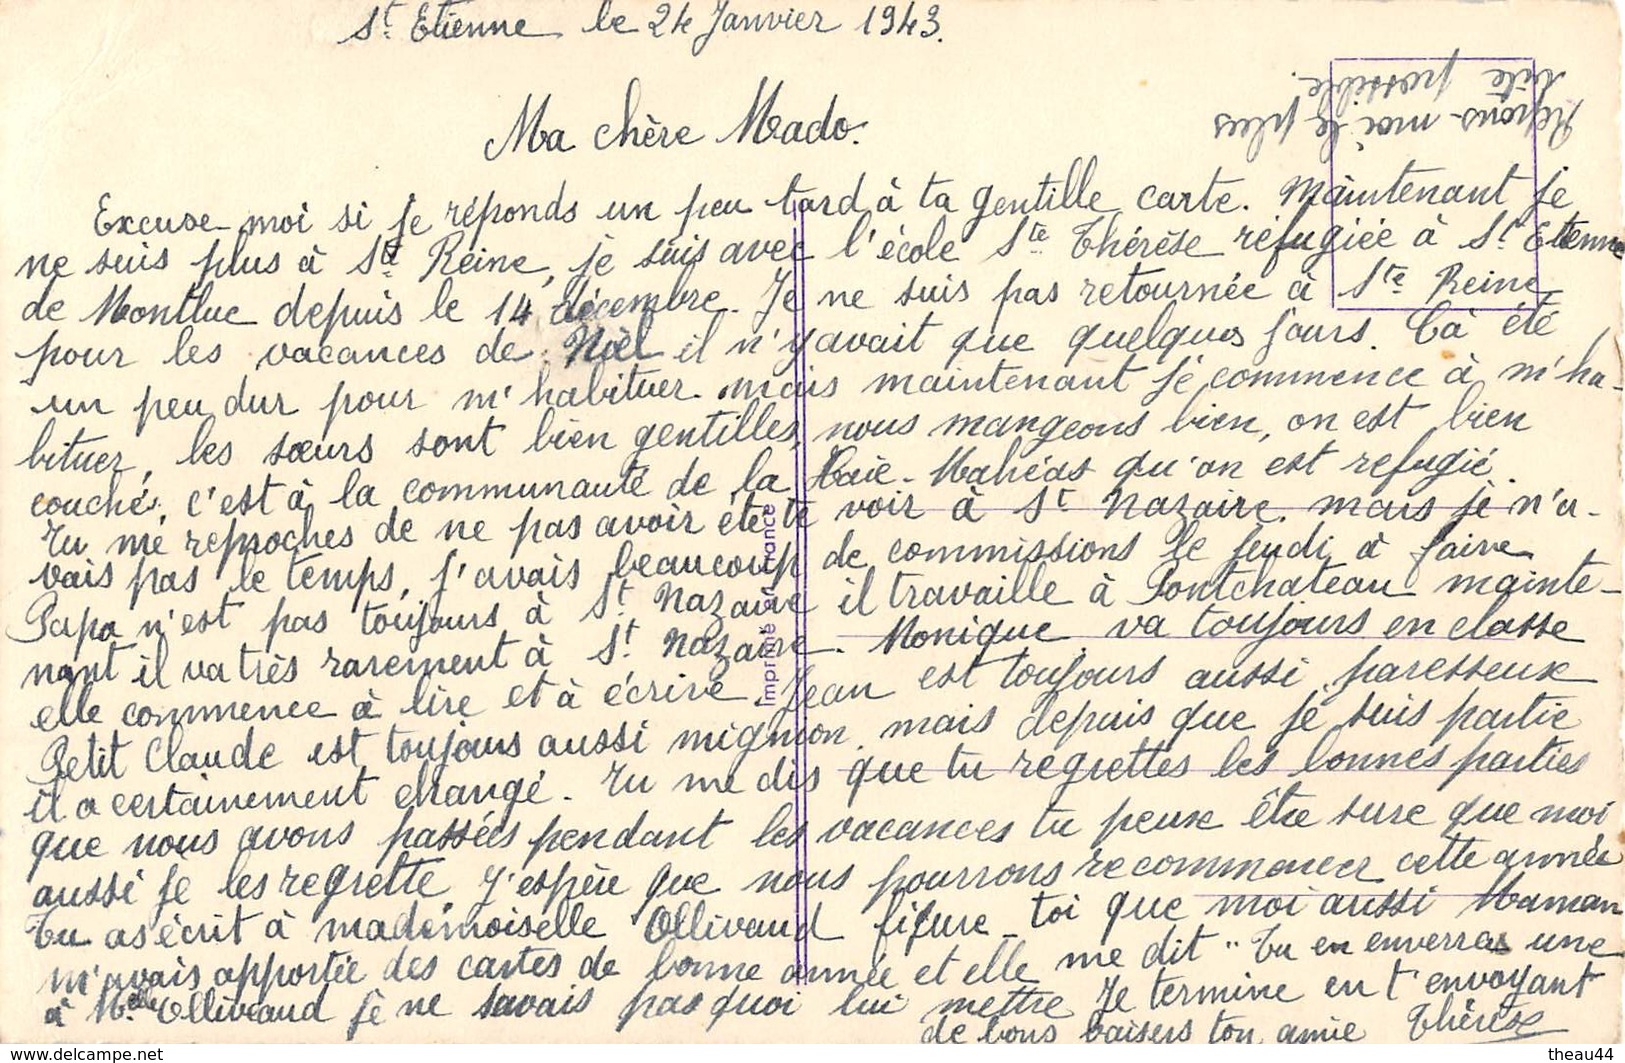 St Etienne le 24 Janvier 1943.
Répons-moi le plus
vite possible.
Ma chère Mado.
Excuse-moi si je réponds un peu tard à ta gentille carte. Maintenant je
ne suis plus à Ste Reine, je suis avec l'école Ste Thérèse réfugiée à St Etienne
de Montluc depuis le 14 décembre. Je ne suis pas retournée à Ste Reine
pour les vacances de Noël il n'y avait que quelques jours. Cà été
un peu dur pour m'habituer mais maintenant je commence à m'ha-
bituer, les sœurs sont bien gentilles, nous mangeons bien, on est bien
couché, c'est à la communauté de la Haie-Mahéas qu'on est refugié.
Tu me reproches de ne pas avoir été te voir à St Nazaire. mais je n'a-
vais pas le temps, j'avais beaucoup de commissions le jeudi à faire
Papa n'est pas toujours à St Nazaire il travaille à Pontchateau mainte-
nant il va très rarement à St Nazaire. Monique va toujours en classe
elle commence à lire et à écrire. Jean est toujours aussi paresseux
Petit Claude est toujours aussi mignon, mais depuis que je suis partie
il a certainement changé. Tu me dis que tu regrettes les bonnes parties
que nous avons passées pendant les vacances tu peux être sure que moi
aussi je les regrette. J'espère que nous pourrons recommencer cette année
Tu as écrit à mademoiselle Ollivaud figure-toi que moi aussi Maman
m'avais apportée des cartes de bonne année et elle me dit "Tu en enverras une
à Melle Ollivaud je ne savais pas quoi lui mettre Je termine en t'envoyant
de bons baisers ton amie Thérèse
Imprimé en France
theau44